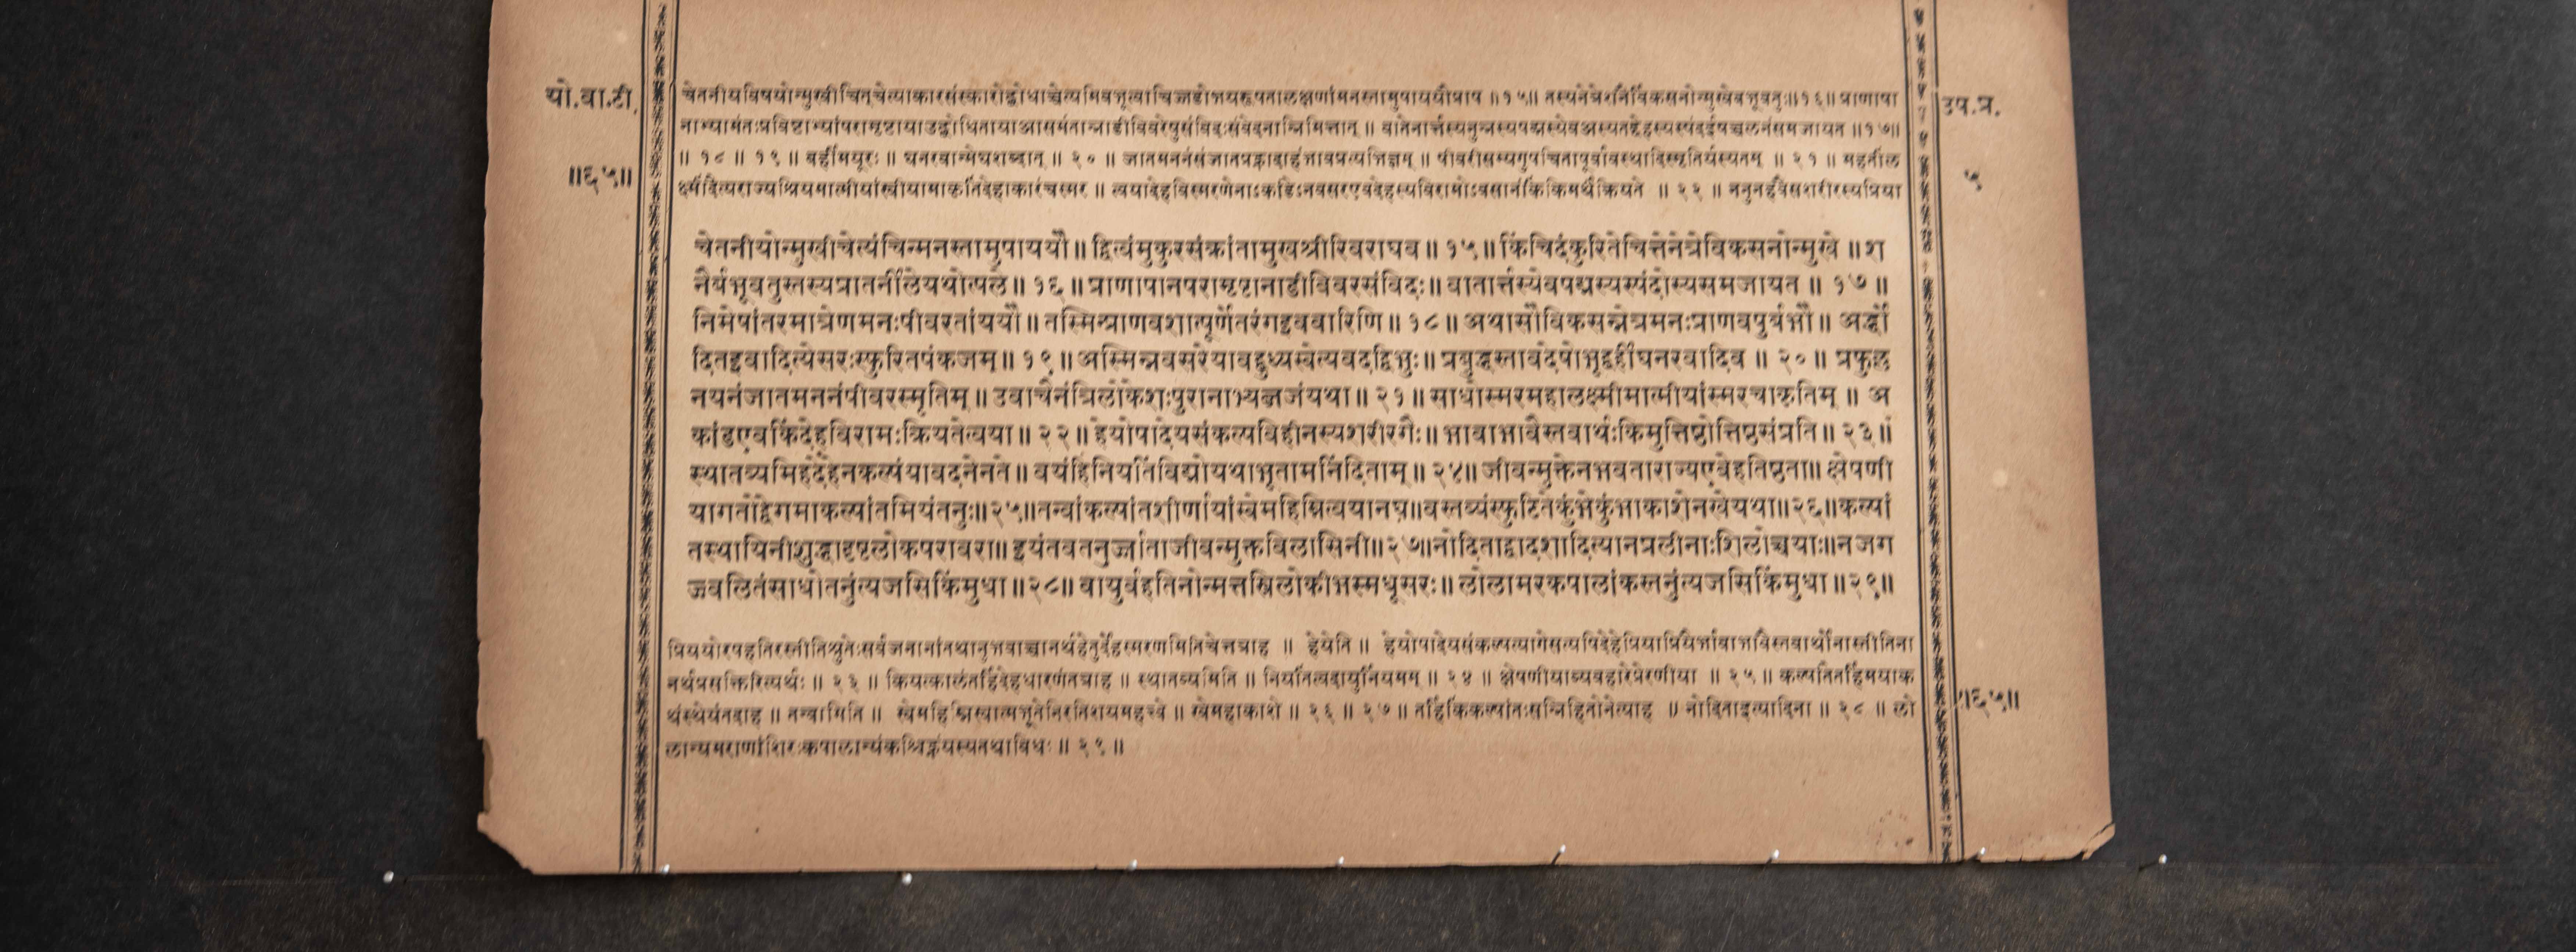 यो.वा.टी.
॥६५॥
उप.प्र.
५
चेतनीयविषयोन्मुखीचित्चेत्याकारसंस्कारोद्बोधाच्चेत्यमिवभूत्वाचिज्जडोभयरूपतालक्षणांमनस्तामुपाययौप्राप ॥१५॥ तस्यनेत्रेशनैर्विकसनोन्मुखेबभूवतुः॥१६॥ प्राणापा
नाभ्यामंतःप्रविष्टाभ्यांपरामृष्टायाउद्बोधितायाआसमंतान्नाडीविवरेषुसंविदःसंवेदनान्निमित्तात् ॥ वातेनार्त्तस्यनुन्नस्यपद्मस्येवअस्यतद्देहस्यस्पंदईषच्चलनंसमजायत ॥१७॥
॥ १८ ॥ १९ ॥ बर्हीमयूरः ॥ घनरवान्मेघशब्दात् ॥ २० ॥ जातमननंसंजातप्रह्लादाहंभावप्रत्यभिज्ञम् ॥ पीवरीसम्यगुपचितापूर्वावस्थादिस्मृतिर्यस्यतम् ॥ २१ ॥ महतींल
क्ष्मींदैत्यराज्यश्रियमात्मीयांस्वीयामाकृतिंदेहाकारंचस्मर ॥ त्वयादेहविस्मरणेनाऽकांडेऽनवसरएवदेहस्यविरामोऽवसानंकिंकिमर्थंक्रियते ॥ २२ ॥ ननुनहवैसशरीरस्यप्रिया
चेतनीयोन्मुखीचेत्यंचिन्मनस्तामुपाययौ॥ द्वित्वंमुकुरसंक्रांतामुखश्रीरिवराघव॥ १५॥ किंचिदंकुरितेचित्तेनेत्रेविकसनोन्मुखे ॥श
नैर्बभूवतुस्तस्यप्रातर्नीलेयथोत्पले॥ १६॥ प्राणापानपरामृष्टानाडीविवरसंविदः॥ वातार्त्तस्येवपद्मस्यस्पंदोस्यसमजायत ॥ १७ ॥
निमेषांतरमात्रेणमनःपीवरतांययौ॥ तस्मिन्प्राणवशात्पूर्णेतरंगइववारिणि॥ १८॥ अथासौविकसन्नेत्रमनःप्राणवपुर्बभौ॥ अर्द्धो
दितइवादित्येसरःस्फुरितपंकजम्॥ १९॥ अस्मिन्नवसरेयावद्बुध्यस्वेत्यवदद्विभुः॥ प्रबुद्धस्तावदेषोभूद्बर्हीघनरवादिव ॥ २०॥ प्रफुल्ल
नयनंजातमननंपीवरस्मृतिम्॥ उवाचैनंत्रिलोकेशःपुरानाभ्यब्जजंयथा॥ २१॥ साधोस्मरमहालक्ष्मीमात्मीयांस्मरचाकृतिम् ॥ अ
कांडएवकिंदेहविरामःक्रियतेत्वया॥ २२॥ हेयोपादेयसंकल्पविहीनस्यशरीरगैः॥ भावाभावैस्तवार्थःकिमुत्तिष्ठोत्तिष्ठसंप्रति॥ २३॥
स्थातव्यमिहदेहेनकल्पंयावदनेनते॥ वयंहिनियतिंविद्मोयथाभूतामनिंदिताम्॥ २४॥ जीवन्मुक्तेनभवताराज्यएवेहतिष्ठता॥ क्षेपणी
यागतोद्वेगमाकल्पांतमियंतनुः॥२५॥तन्वांकल्पांतशीर्णायांस्वेमहिम्नित्वयानघ॥वस्तव्यंस्फुटितेकुंभेकुंभाकाशेनखेयथा॥२६॥कल्पां
तस्थायिनीशुद्धादृष्टलोकपरावरा॥ इयंतवतनुर्ज्जाताजीवन्मुक्तविलासिनी॥२७॥नोदिताद्वादशादित्यानप्रलीनाःशिलोच्चयाः॥नजग
ज्ज्वलितंसाधोतनुंत्यजसिकिंमुधा॥२८॥ वायुर्वहतिनोन्मत्तस्त्रिलोकीभस्मधूसरः॥ लोलामरकपालांकस्तनुंत्यजसिकिंमुधा॥२९॥
प्रिययोरपहतिरस्तीतिश्रुतेःसर्वजनानांतथानुभवाच्चानर्थहेतुर्देहस्मरणमितिचेत्तत्राह ॥ हेयेति॥ हेयोपादेयसंकल्पत्यागेसत्यपिदेहेप्रियाप्रियैर्भावाभावैस्तवार्थोनास्तीतिना
नर्थप्रसक्तिरित्यर्थः॥ २३ ॥ कियत्कालंतर्हिदेहधारणंतत्राह ॥ स्थातव्यमिति॥ नियतिंत्वदायुर्नियमम्॥ २४ ॥ क्षेपणीयाव्यवहारेप्रेरणीया ॥ २५॥ कल्पांतेतर्हिमयाक
थंस्थेयंतदाह ॥ तन्वामिति॥ स्वेमहिम्निस्वात्मभूतेनिरतिशयमहत्त्वे॥ खेमहाकाशे॥ २६ ॥ २७॥ तर्हिकिंकल्पांतःसन्निहितोनेत्याह ॥ नोदिताइत्यादिना॥ २८ ॥ लो
लान्यमराणांशिरःकपालान्यंकश्चिह्नंयस्यतथाविधः॥ २९ ॥
॥६५॥